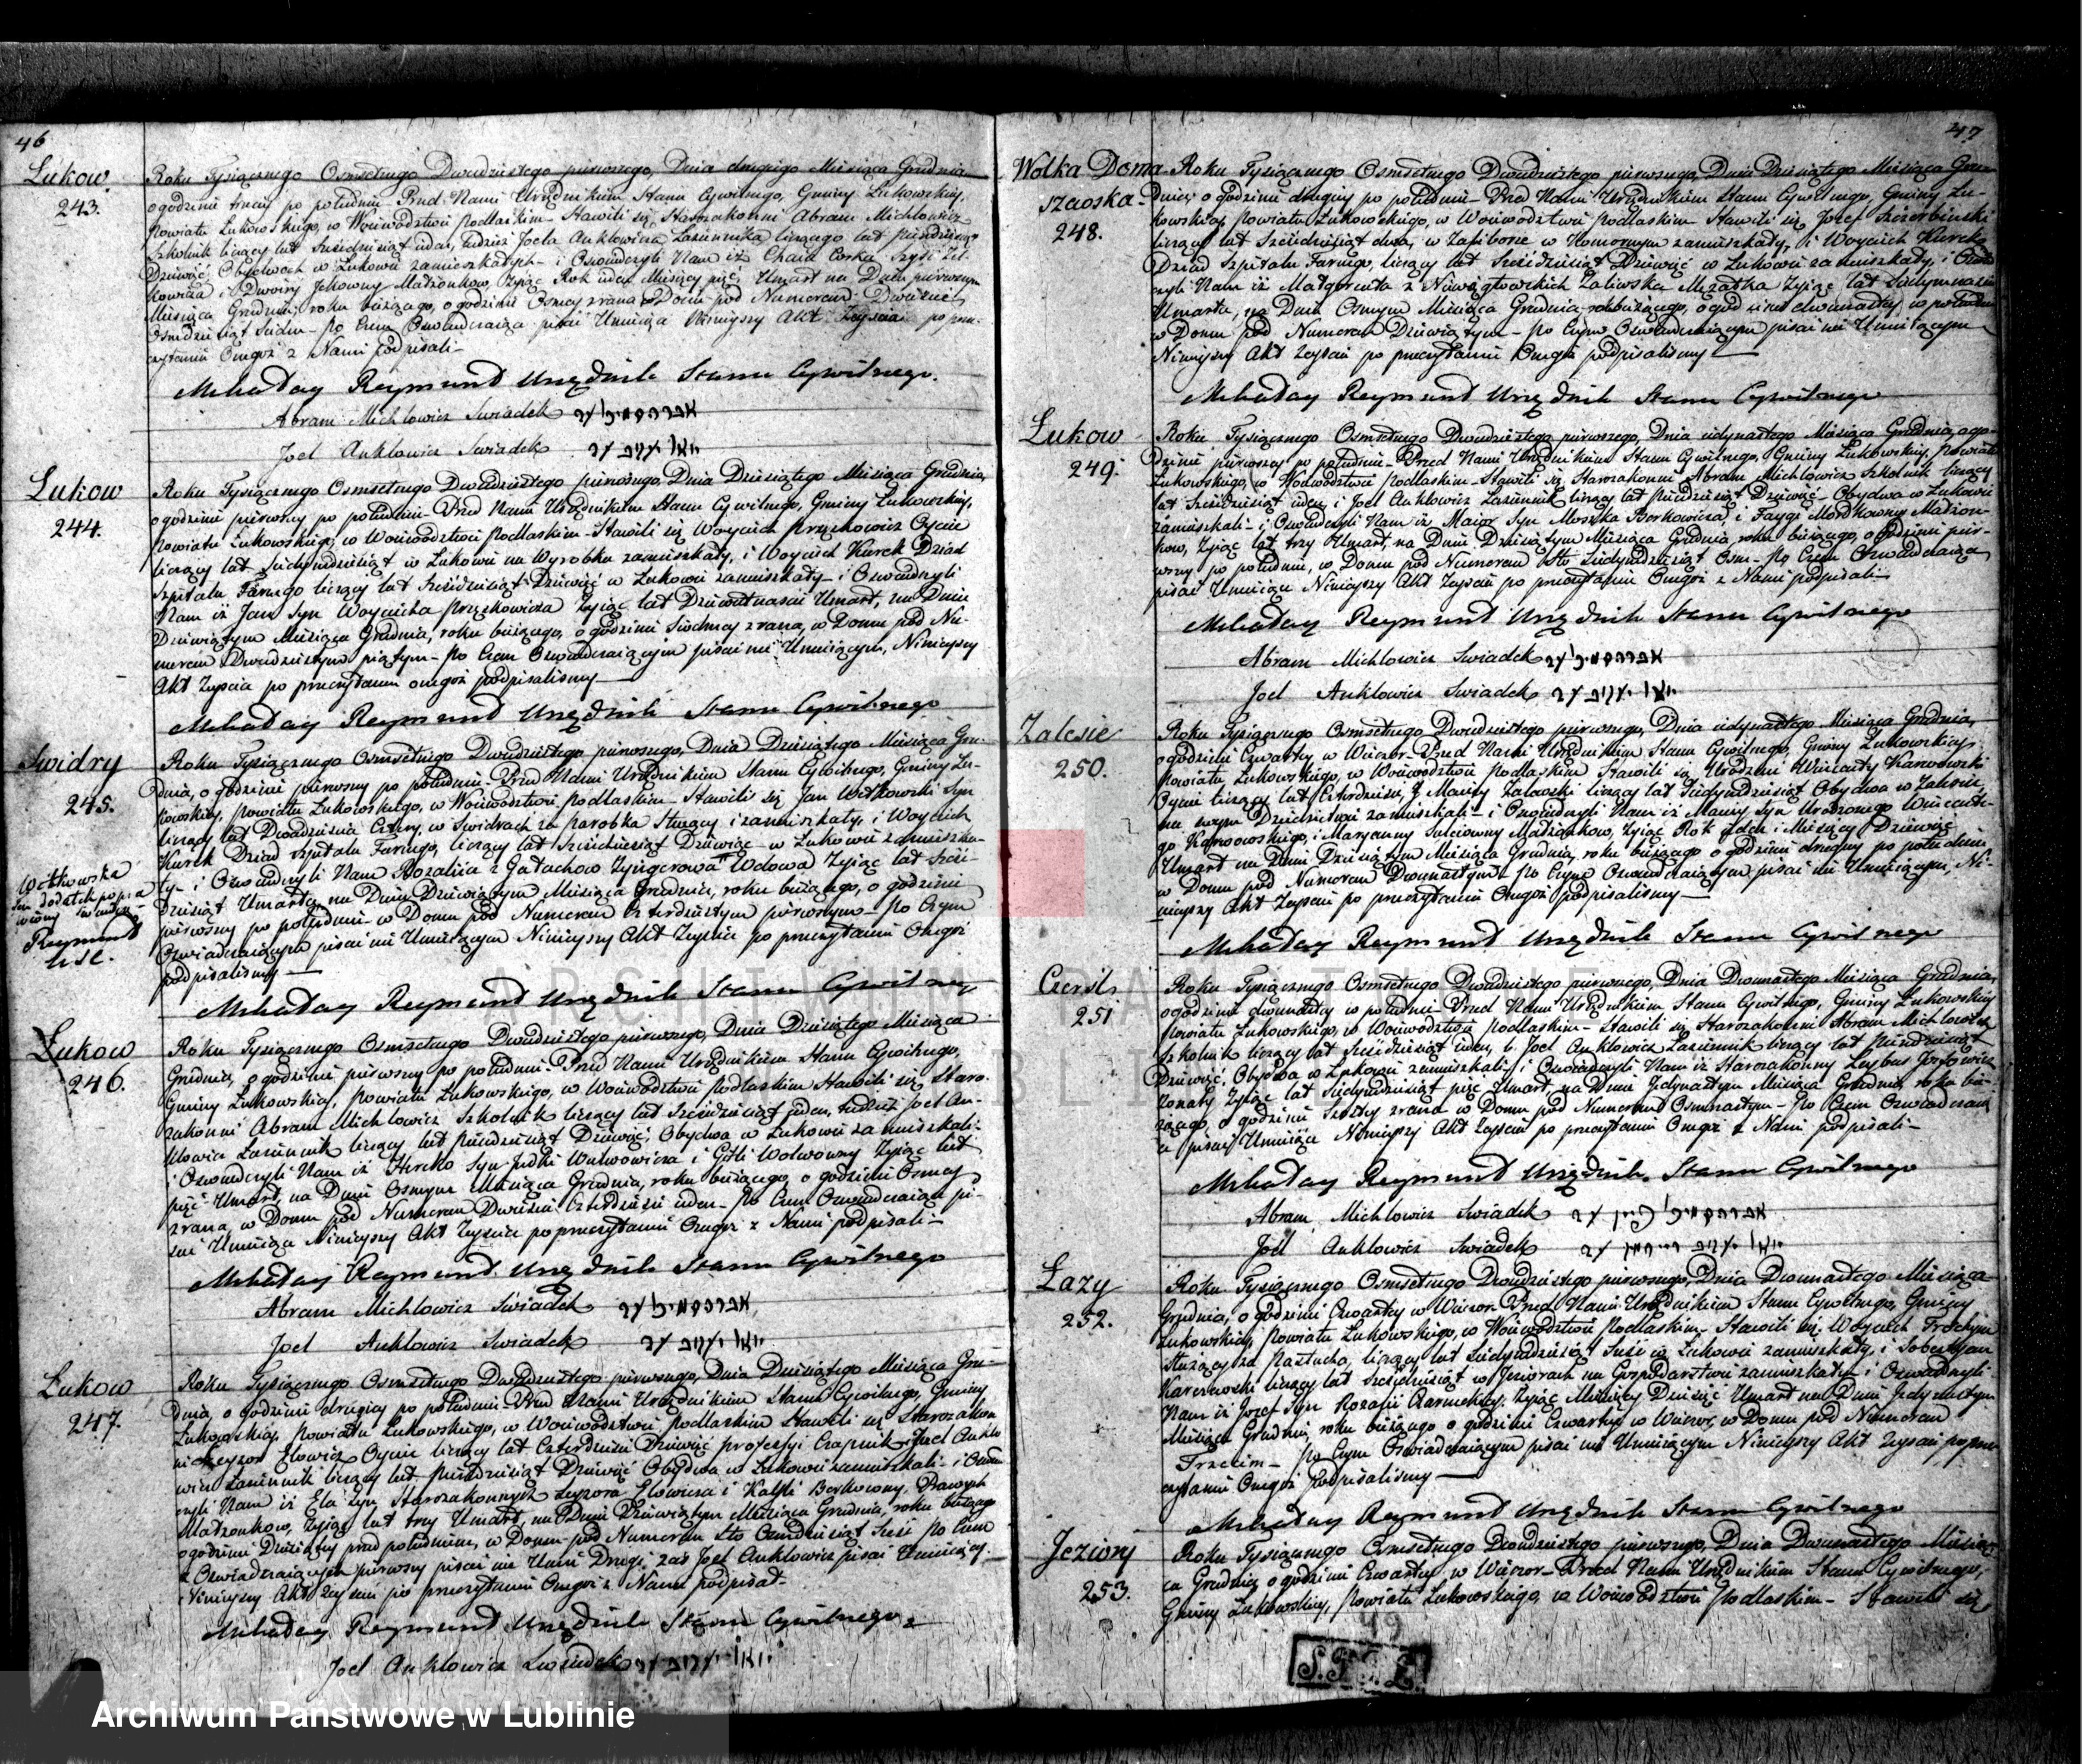 46
Łukow
243.
Roku Tysiącznego Osmsetnego Dwudziestego pierwszego, Dnia drugiego Miesiąca Grudnia
o godzinie trzeciey po południu Przed Nami Urzędnikiem Stanu Cywilnego, Gminy Łukowskiey,
Powiatu Łukowskiego, w Woiewodztwie Podlaskim Stawili się Starozakonni Abram Michlowicz
Szkolnik liczący lat Sześcdziesiąt ieden, tudzież Joela Anklowicza Łaziennika liczącego lat pięcdziesiąt
Dziewięć, Obydwoch w Łukowie zamieszkałych i Oswiadczyli Nam iż Chaia Corka
kowicza i Dwoiry Małżonkow, żyiąc Rok ieden Miesięcy pięć Umarł na Dniu pierwszym
Miesiąca Grudnia, roku bieżącego, o godzinie Osmey zrana w Domu pod Numerem Dwieście
Osmdziesiąt Siedm Po Czem Oswiadczaiąca pisać Umieiąca Ninieyszy Akt Zeyscia po prze-
czytaniu Onegoż z Nami podpisali
Mikołay Reymund Urzędnik Stanu Cywilnego.
Abram Michlowicz Swiadek
Joel Anklowicz Swiadek
Łukow
244.
Roku Tysiącznego Osmsetnego Dwudziestego pierwszego, Dnia Dziesiątego Miesiąca Grudnia,
o godzinie pierwszey po południu Przed Nami Urzędnikiem Stanu Cywilnego, Gminy Łukowskiey,
Powiatu Łukowskiego, w Woiewodztwie Podlaskim Stawili się Woyciech Przechowicz Oyciec
liczący lat Siedmdziesiąt w Łukowie na Wyrobku zamieszkały, i Woyciech Kurek Dziad
Szpitala Farnego liczący lat Sześcdziesiąt Dziewięć w Łukowie zamieszkały i Oswiadczyli
Nam iż Jan Syn Woyciecha Przechowicza żyiąc lat Dziewietnascie Umarł, na Dniu
Dziewiątym Miesiąca Grudnia, roku bieżącego, o godzinie Siodmey zrana, w Domu pod Nu-
merem Dwudziestym piątym Po Czem Oswiadczaiącym pisać nie Umieiącym, Ninieyszy
Akt Zeyscia po przeczytaniu onegoż podpisalismy
Mikołay Reymund Urzędnik Stanu Cywilnego
Swidry
245.
Roku Tysiącznego Osmsetnego Dwudziestego pierwszego, Dnia Dziesiątego Miesiąca Gru-
dnia, o godzinie pierwszey po południu Przed Nami Urzędnikiem Stanu Cywilnego, Gminy Łu-
kowskiey, Powiatu Łukowskiego, w Woiewodztwie Podlaskim Stawili się Jan Witkowski Syn
liczący lat Dwadziescia Cztery, w Swidrach za Parobka Służący i zamieszkały, i Woyciech
Kurek Dziad Szpitala Farnego, liczący lat Sześcdziesiąt Dziewięć w Łukowie zamieszka-
ły i Oswiadczyli Nam Rozalia z Gałachow Wdowa żyiąc lat Sześć-
dziesiąt Umarła, na Dniu Dziewiątym Miesiąca Grudnia, roku bieżącego, o godzinie
pierwszey po południu w Domu pod Numerem Czterdziestym pierwszym Po Czym
Oswiadczaiącym pisać nie Umieiącym Ninieyszy Akt Zeyscia po przeczytaniu Onegoż
podpisalismy
Witkowska
ten dodatek
Reymund
Mikołay Reymund Urzędnik Stanu Cywilnego
Łukow
246.
Roku Tysiącznego Osmsetnego Dwudziestego pierwszego, Dnia Dziesiątego Miesiąca
Grudnia, o godzinie pierwszey po południu Przed Nami Urzędnikiem Stanu Cywilnego,
Gminy Łukowskiey, Powiatu Łukowskiego, w Woiewodztwie Podlaskim Stawili się Staro-
zakonni Abram Michlowicz Szkolnik liczący lat Sześcdziesiąt ieden, tudzież Joel An-
klowicz Łaziennik liczący lat pięcdziesiąt Dziewięć, Obydwa w Łukowie zamieszkali
i Oswiadczyli Nam iż Hercko Syn Judki Wulwowicza i Gitli Wolwowny żyiąc lat
pięć Umarł, na Dniu Osmym Miesiąca Grudnia, roku bieżącego, o godzinie Osmey
zrana, w Domu pod Numerem Dwieście Czterdzieści ieden Po Czem Oswiadczaiąca pi-
sać Umieiąca Ninieyszy Akt Zeyscia po przeczytaniu Onegoż z Nami podpisali
Mikołay Reymund Urzędnik Stanu Cywilnego
Abram Michlowicz Swiadek
Joel Anklowicz Swiadek
Łukow
247.
Roku Tysiącznego Osmsetnego Dwudziestego pierwszego, Dnia Dziesiątego Miesiąca Gru-
dnia, o godzinie drugiey po południu Przed Nami Urzędnikiem Stanu Cywilnego, Gminy
Łukowskiey, Powiatu Łukowskiego, w Woiewodztwie Podlaskim Stawili się Starozakon-
ni Leyzor Elowicz Oyciec liczący lat Czterdzieści Dziewięć professyi Czapnik, i Joel Anklo-
wicz Łaziennik liczący lat pięcdziesiąt Dziewięć Obydwa w Łukowie zamieszkali i Oswiad-
czyli Nam iż Ela Syn Starozakonnych Leyzora Elowicza i Kałki Berkowny Prawych
Małżonkow, żyiąc lat trzy Umarł, na Dniu Dziewiątym Miesiąca Grudnia, roku bieżącego
o godzinie Dziesiątey przed południem, w Domu pod Numerem Sto Osmdziesiąt Sześć Po Czem
Oswiadczaiących pierwszy pisać nie Umie Drugi zaś Joel Anklowicz pisać Umieiący
Ninieyszy Akt Zeyscia po przeczytaniu Onegoż z Nami podpisał
Mikołay Reymund Urzędnik Stanu Cywilnego
Joel Anklowicz Swiadek
47
Wolka Doma
szaoska
248.
Roku Tysiącznego Osmsetnego Dwudziestego pierwszego, Dnia Dziesiątego Miesiąca Gru-
dnia, o godzinie drugiey po południu Przed Nami Urzędnikiem Stanu Cywilnego, Gminy Łu-
kowskiey, Powiatu Łukowskiego, w Woiewodztwie Podlaskim Stawili się Jozef Szczerbinski
liczący lat Sześcdziesiąt dwa, w Zasiborze w Komornym zamieszkały, i Woyciech Kurek
Dziad Szpitala Farnego, liczący lat Sześcdziesiąt Dziewięć w Łukowie zamieszkały, i Oswiad-
czyli Nam iż Małgorzata z Zaliwska Mężatka żyiąc lat
Umarła, na Dniu Osmym Miesiąca Grudnia roku bieżącego, o godzinie dwunastey w południe
w Domu pod Numerem Dziewiątym Po Czym Oswiadczaiącym pisać nie Umieiącym
Ninieyszy Akt Zeyscia po przeczytaniu Onegoż podpisalismy
Mikołay Reymund Urzędnik Stanu Cywilnego
Łukow
249.
Roku Tysiącznego Osmsetnego Dwudziestego pierwszego, Dnia iedynastego Miesiąca Grudnia, o go-
dzinie pierwszey po południu Przed Nami Urzędnikiem Stanu Cywilnego, Gminy Łukowskiey, Powiatu
Łukowskiego, w Woiewodztwie Podlaskim Stawili się Starozakonni Abram Michlowicz Szkolnik liczący
lat Sześcdziesiąt ieden, i Joel Anklowicz Łaziennik liczący lat pięcdziesiąt Dziewięć Obydwa w Łukowie
zamieszkali i Oswiadczyli Nam iż Maior Syn Moszka Berkowicza i Faygi Mordkowny Małżon-
kow, żyiąc lat trzy Umarł, na Dniu Dziesiątym Miesiąca Grudnia roku bieżącego, o godzinie pier-
wszey po południu, w Domu pod Numerem Sto Siedmdziesiąt Osm Po Czem Oswiadczaiąca
pisać Umieiąca Ninieyszy Akt Zeyscia po przeczytaniu Onegoż z Nami podpisali
Mikołay Reymund Urzędnik Stanu Cywilnego
Abram Michlowicz Swiadek
Joel Anklowicz Swiadek
Zalesie
250.
Roku Tysiącznego Osmsetnego Dwudziestego pierwszego, Dnia iedynastego Miesiąca Grudnia,
o godzinie Czwartey w Wieczor Przed Nami Urzędnikiem Stanu Cywilnego, Gminy Łukowskiey,
Powiatu Łukowskiego, w Woiewodztwie Podlaskim Stawili się Urodzeni Wincenty Karwowski
Oyciec liczący lat Czterdzieści, i Maciey Zaleski liczący lat Siedmdziesiąt Obydwa w Zalesiu
na swym Dziedzictwie zamieszkali i Oswiadczyli Nam iż Syn Urodzonego Wincente-
go Karwowskiego, i Maryanny Małżonkow, żyiąc Rok ieden i Miesięcy Dziewięć
Umarł na Dniu Dziesiątym Miesiąca Grudnia, roku bieżącego o godzinie drugiey po południu
w Domu pod Numerem Dwunastym Po Czym Oswiadczaiącym pisać nie Umieiącym, Ni-
nieyszy Akt Zeyscia po przeczytaniu Onegoż podpisalismy
Mikołay Reymund Urzędnik Stanu Cywilnego
Czersl
251
Roku Tysiącznego Osmsetnego Dwudziestego pierwszego, Dnia Dwunastego Miesiąca Grudnia,
o godzinie dwunastey w południe Przed Nami Urzędnikiem Stanu Cywilnego, Gminy Łukowskiey
Powiatu Łukowskiego, w Woiewodztwie Podlaskim Stawili się Starozakonni Abram Michlowicz
Szkolnik liczący lat Sześcdziesiąt ieden, i Joel Anklowicz Łaziennik liczący lat Pięcdziesiąt
Dziewięć, Obydwa w Łukowie zamieszkali, i Oswiadczyli Nam iż Starozakonny Leybus Josiowicz
Żonaty żyiąc lat Siedmdziesiąt pięć Umarł, na Dniu Jedynastym Miesiąca Grudnia roku bie-
żącego, o godzinie Szostey zrana w Domu pod Numerem Osmnastym Po Czem Oswiadczaią-
ca pisać Umieiąca Ninieyszy Akt Zeyscia po przeczytaniu Onegoż z Nami podpisali
Mikołay Reymund Urzędnik Stanu Cywilnego
Abram Michlowicz Swiadek
Joel Anklowicz Swiadek
Łazy
252.
Roku Tysiącznego Osmsetnego Dwudziestego pierwszego, Dnia Dwunastego Miesiąca
Grudnia, o godzinie Czwartey w Wieczor Przed Nami Urzędnikiem Stanu Cywilnego, Gminy
Łukowskiey, Powiatu Łukowskiego, w Woiewodztwie Podlaskim Stawili się Woyciech Trochym
Służący za Pastucha, liczący lat Siedmdziesiąt Sześć w Łukowie zamieszkały, i Sobestyan
Karczewski liczący lat Sześcdziesiąt w Jeziorach na Gospodarstwie zamieszkały i Oswiadczyli
Nam iż Jozef Syn Rozalii Czarneckiey, żyiąc Miesięcy Dziesięć Umarł na Dniu Jedynastym
Miesiąca Grudnia, roku bieżącego o godzinie Czwartey w Wieczor, w Domu pod Numerem
Trzecim Po Czym Oswiadczaiącym pisać nie Umieiącym Ninieyszy Akt Zeyscia po prze-
czytaniu Onegoż podpisalismy
Mikołay Reymund Urzędnik Stanu Cywilnego
Jeziory
253.
Roku Tysiącznego Osmsetnego Dwudziestego pierwszego, Dnia Dwunastego Miesią-
ca Grudnia, o godzinie Czwartey w Wieczor Przed Nami Urzędnikiem Stanu Cywilnego,
Gminy Łukowskiey, Powiatu Łukowskiego, w Woiewodztwie Podlaskim Stawili się
Archiwum Państwowe w Lublinie